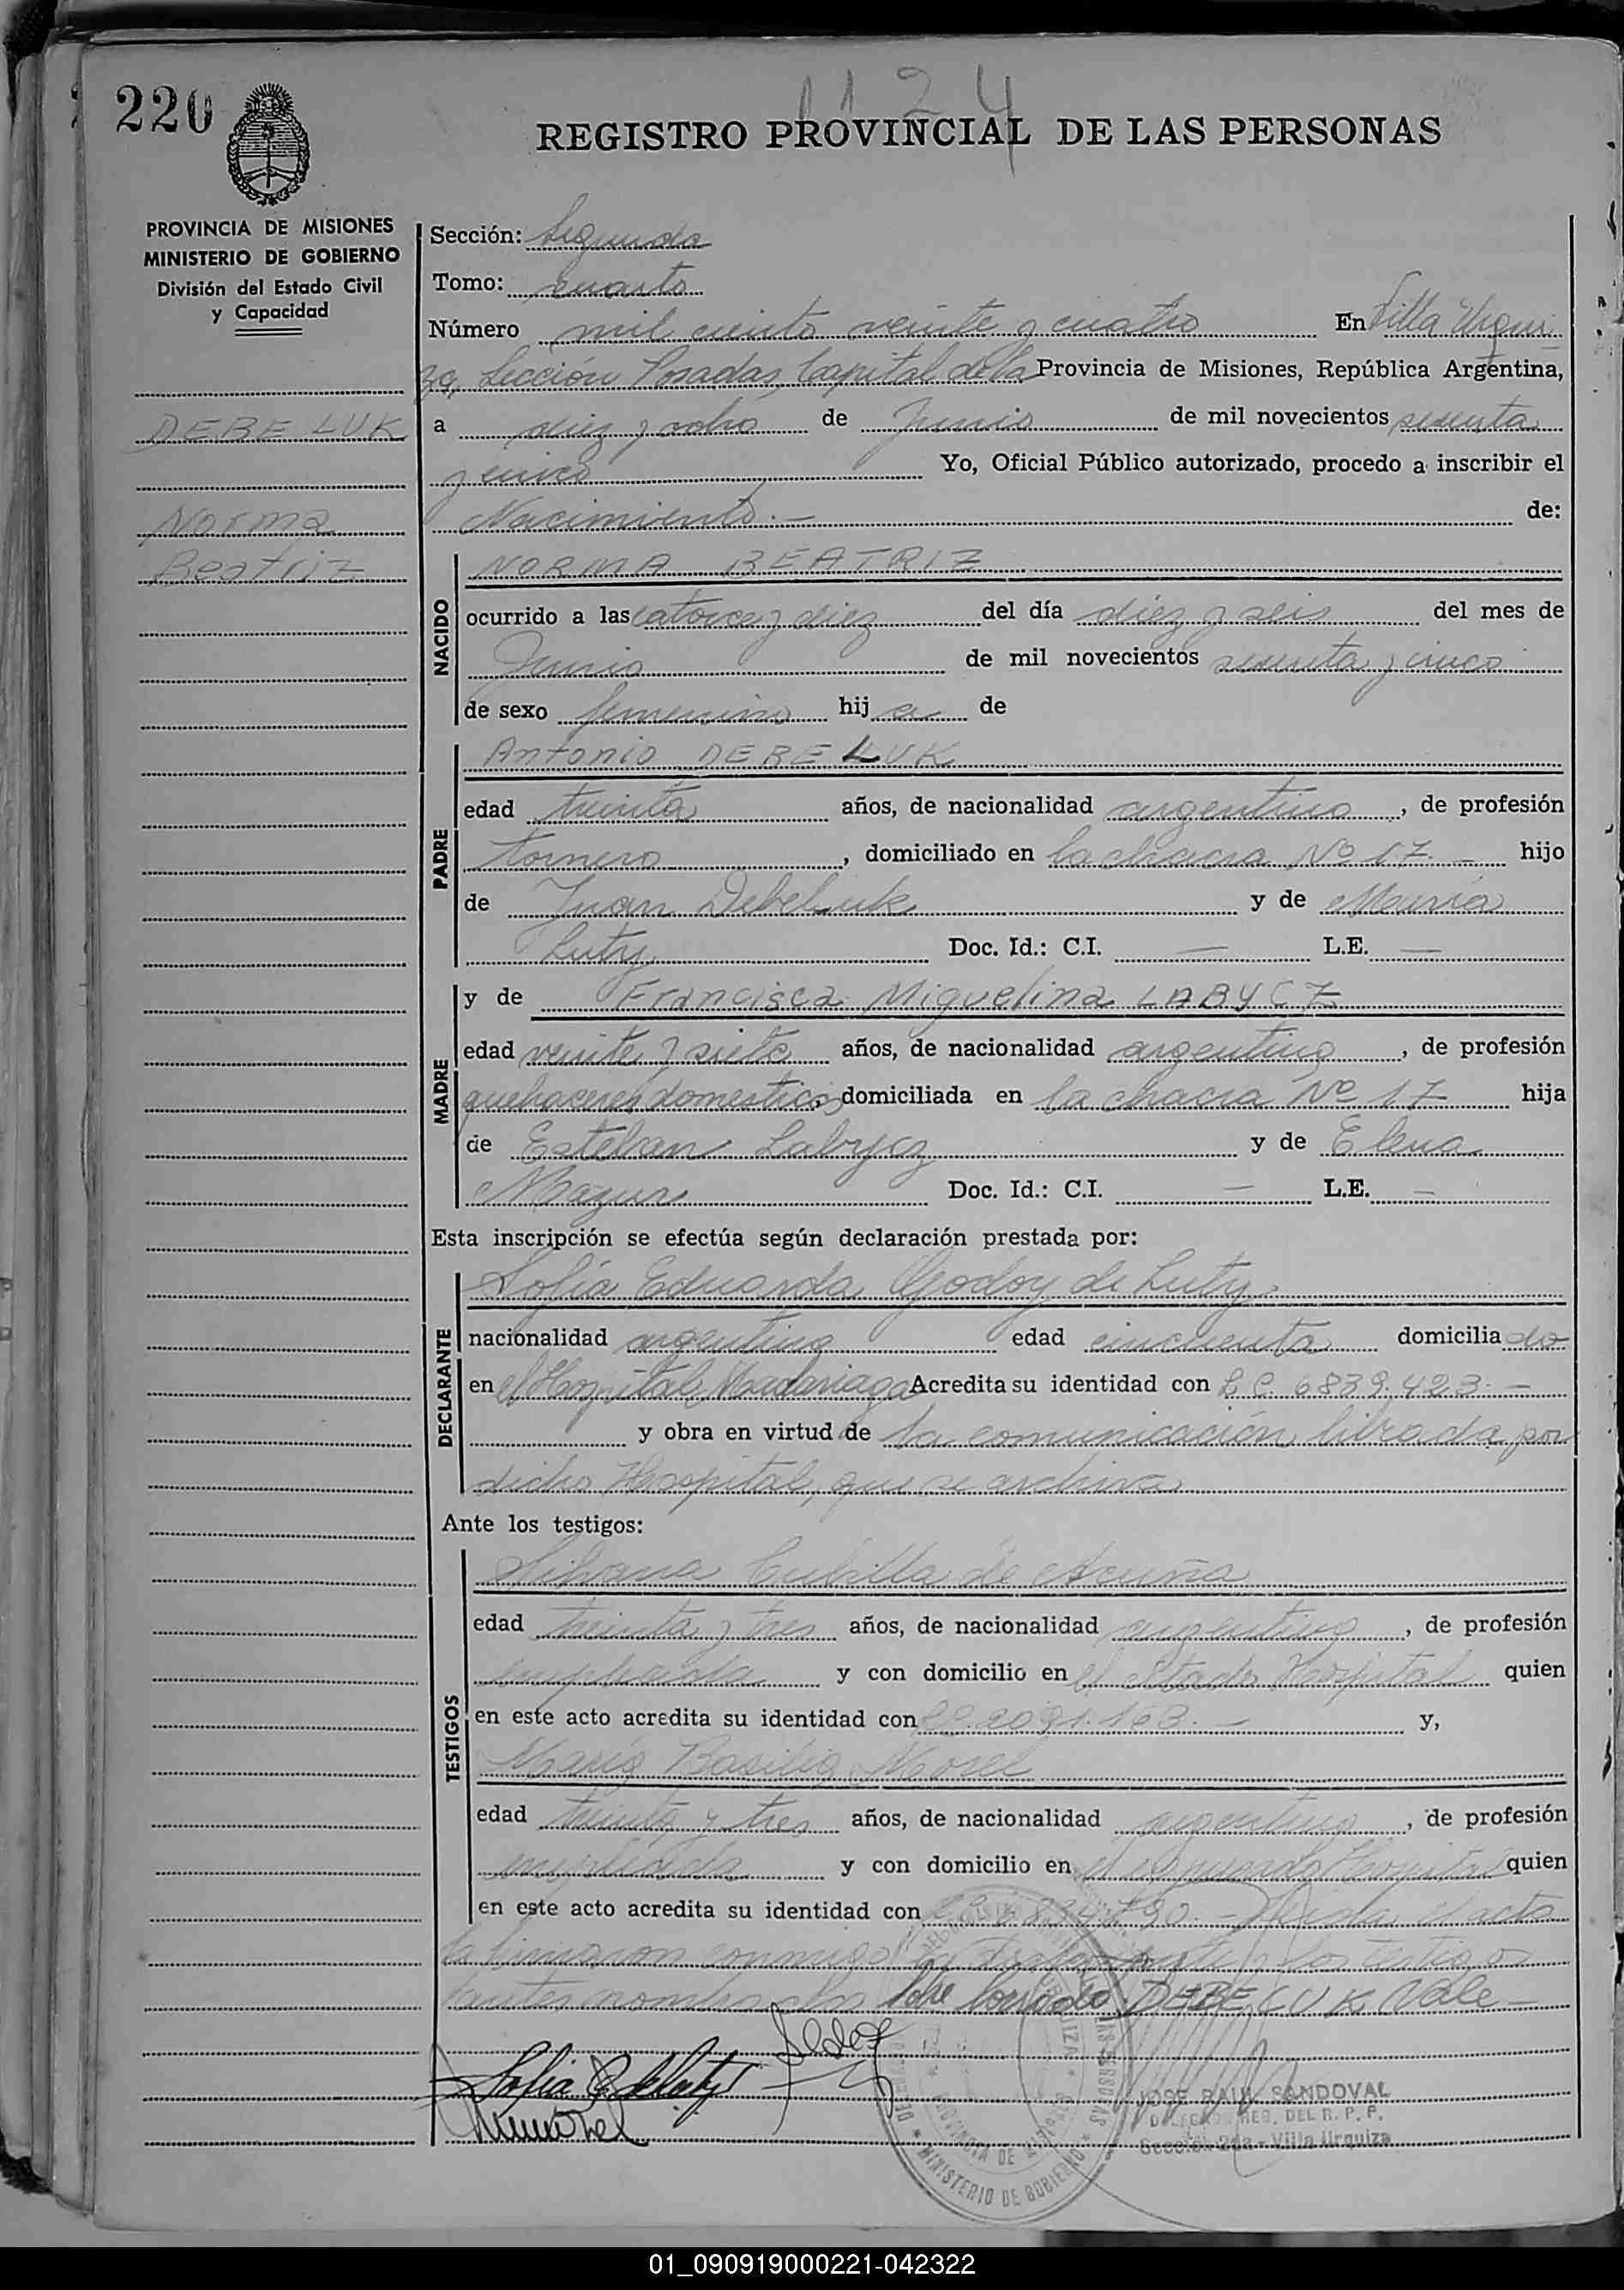 1124
220
REGISTRO PROVINCIAL DE LAS PERSONAS
PROVINCIA DE MISIONES
MINISTERIO DE GOBIERNO
División del Estado Civil
y Capacidad
DEBELUK
Norma
Beatriz
Sección: Segunda
Tomo: cuarto
Número mil ciento veinte y cuatro En Villa Urqui
za, Sección Posadas, Capital de la Provincia de Misiones, República Argentina,
a diez y ocho de Junio de mil novecientos sesenta
y cinco Yo, Oficial Público autorizado, procedo a inscribir el
Nacimiento.- de:
NACIDO
NORMA BEATRIZ
ocurrido a las catorce y diez del día diez y seis del mes de
Junio de mil novecientos sesenta y cinco
de sexo femenino hija de
PADRE
Antonio DEBELUK
edad treinta años, de nacionalidad argentino, de profesión
tornero, domiciliado en la chacra Nº 17.- hijo
de Juan Debeluk y de María
Luty Doc. Id.: C.I. — L.E. —
MADRE
y de Francisca Miguelina LABYCZ
edad veinte y siete años, de nacionalidad argentina, de profesión
quehaceres domesticos, domiciliada en la chacra Nº 17 hija
de Esteban Labycz y de Elena
Mazur Doc. Id.: C.I. — L.E. —
Esta inscripción se efectúa según declaración prestada por:
DECLARANTE
Sofía Eduarda Godoy de Luty
nacionalidad argentina edad cincuenta domiciliado
en el Hospital Madariaga Acredita su identidad con L.C. 6839.423.-
y obra en virtud de la comunicación librada por
dicho Hospital, que se archiva
Ante los testigos:
TESTIGOS
Silvana Cubilla de Acuña
edad treinta y tres años, de nacionalidad argentina, de profesión
empleada y con domicilio en el citado Hospital quien
en este acto acredita su identidad con LC. 2091.163.- y,
María Basilia Morel
edad treinta y tres años, de nacionalidad argentina, de profesión
empleada y con domicilio en el Hospital quien
en este acto acredita su identidad con Leída el acta
la firmaron conmigo y los testigos
antes nombrados Sobre borrado: DEBELUK Vale-
Sofia G de Luty
JOSE RAUL SANDOVAL
DELEGADO REG. DEL R. P. P.
Sección 2da - Villa Urquiza
PROVINCIA DE MISIONES
MINISTERIO DE GOBIERNO
01_090919000221-042322